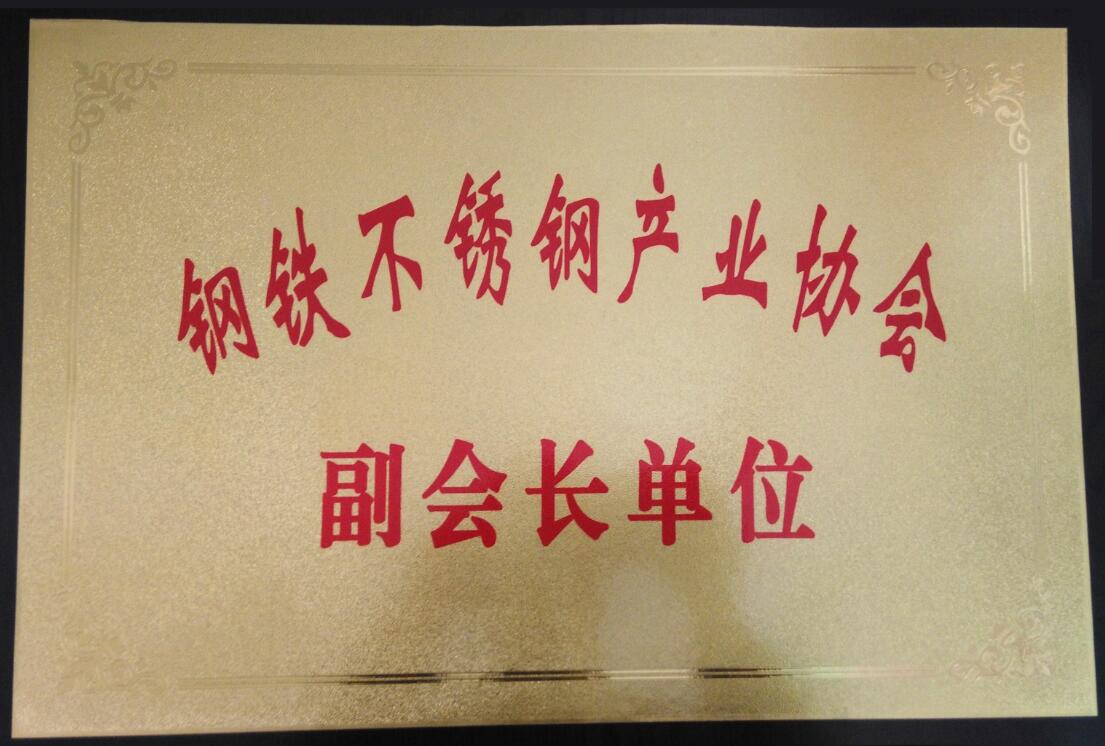 钢铁不锈钢产业协会
副会长单位